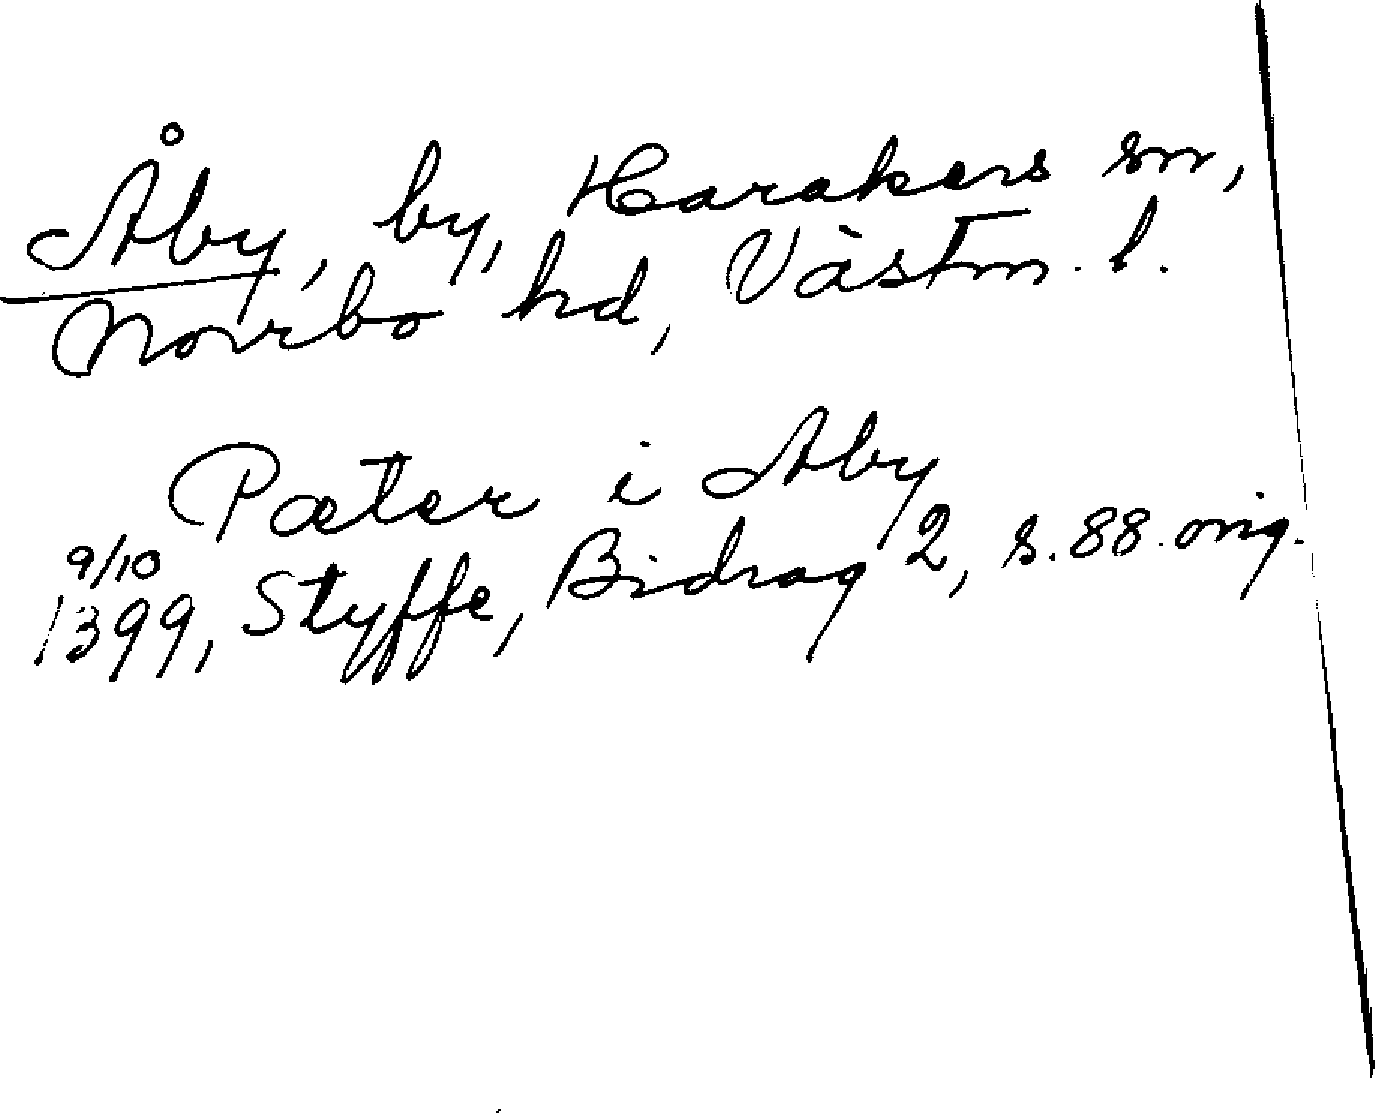 Åby, by, Harakers sn,
Norrbo hd, Västm. l.
Pæter i Aby
9/10
1399, Styffe, Bidrag 2, s. 88. orig.